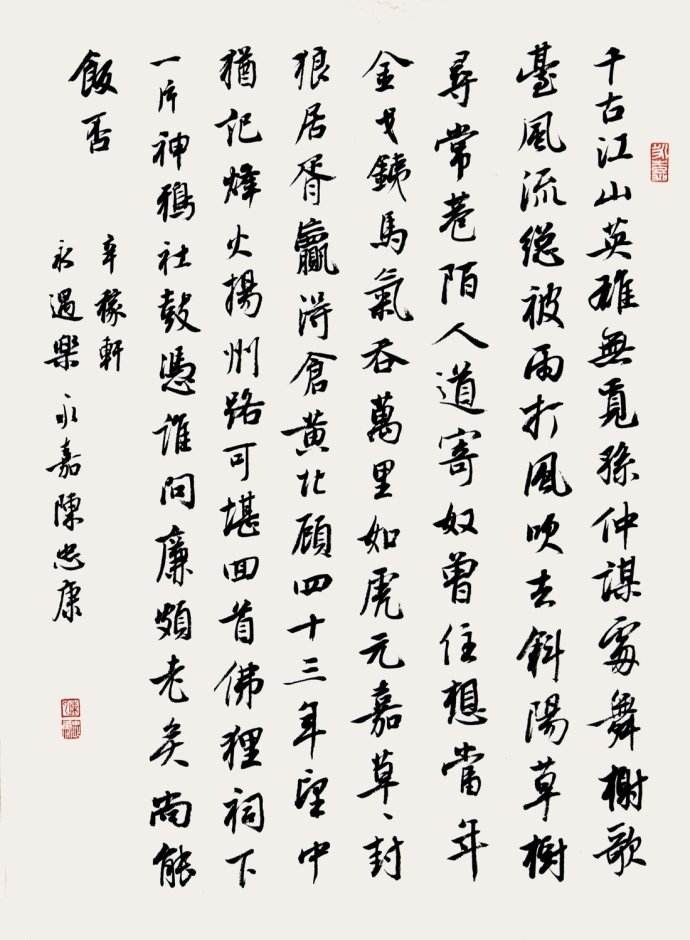 千古江山英雄無覓孫仲謀處舞榭歌
臺風流總被雨打風吹去斜陽草樹
尋常巷陌人道寄奴曾住想當年
金戈鐵馬氣吞萬里如虎元嘉草、封
狼居胥贏得倉黄北顧四十三年望中
猶記烽火揚州路可堪回首佛狸祠下
一片神鴉社鼓憑誰問廉頗老矣尚能
飯否
辛稼軒
永遇樂永嘉陳忠康